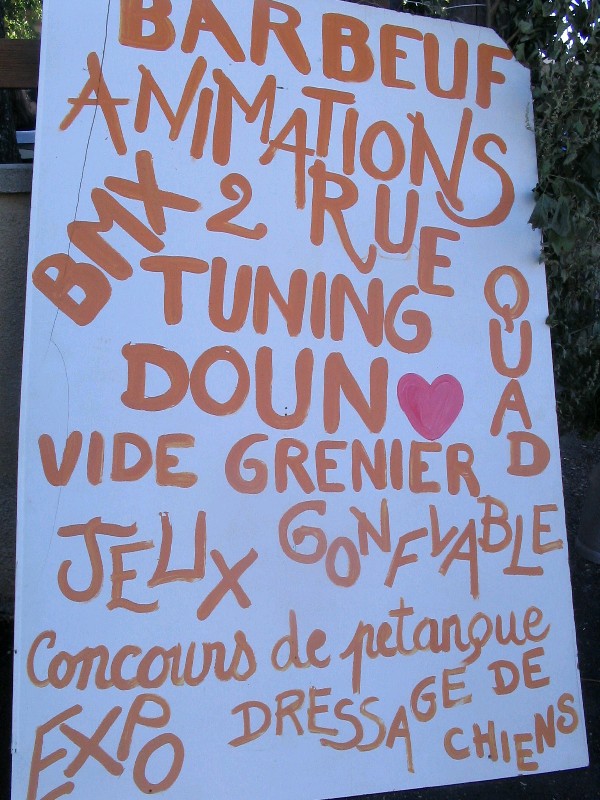 BARBEUF
ANIMATIONS
BMX 2 RUE
TUNING
QUAD
DOUN
VIDE GRENIER
JEUX GONFLABLE
Concours de petanque
EXPO DRESSAGE DE CHIENS